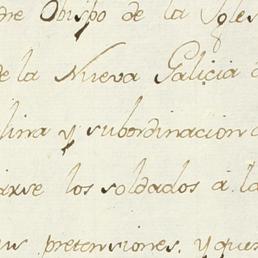 dre Obispo de la Ygles
de la Nueva Galicia
lina y subordinacion
arse los soldados à la
us pretensiones. Y que